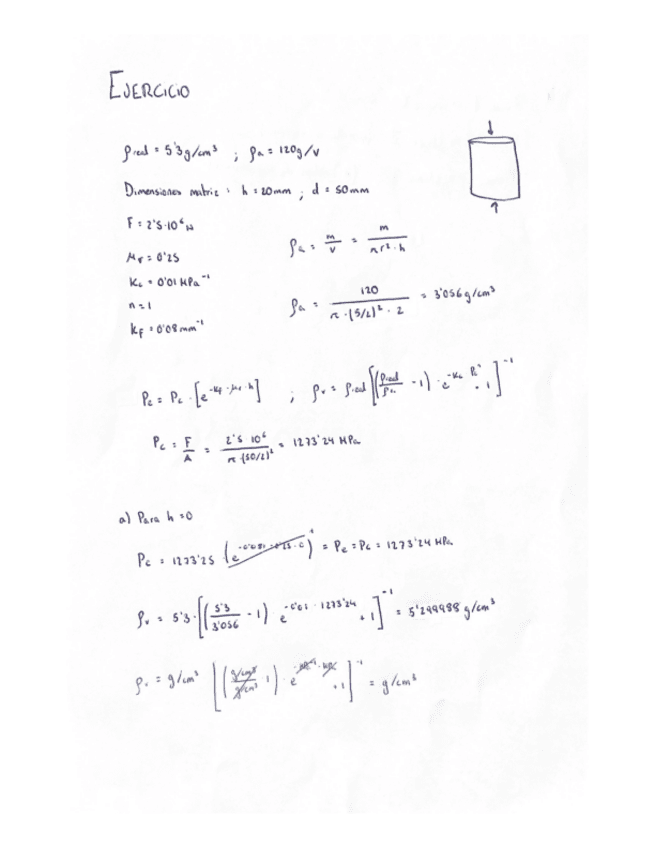 EJERCICIO
ρreal = 5'3g/cm³ ; ρa = 120g/v
Dimensiones matriz : h = 20mm ; d = 50mm
F = 2'5·10⁶ N
μf = 0'25
Kc = 0'01 MPa⁻¹
n = 1
kf = 0'08 mm⁻¹
ρa = m/v = m/(πr²·h)
ρa = 120/(π·(5/2)²·2) = 3'056 g/cm³
Pe = Pc · [e^(-kf · μf · h)] ; ρv = ρreal [(ρreal/ρa - 1) · e^(-Kc Pcⁿ) + 1]⁻¹
Pc = F/A = 2'5 10⁶/(π·(50/2)²) = 1273'24 MPa
a) Para h = 0
Pe = 1273'25 (e^(-0'08 · 0'25 · 0))¹ = Pe = Pc = 1273'24 MPa
ρv = 5'3·[(5'3/3'056 - 1) e^(-0'01 · 1273'24) + 1]⁻¹ = 5'299988 g/cm³
ρv = g/cm³ [(g/cm³/g/cm³ 1) · e^(-MPa⁻¹ · MPa) + 1]⁻¹ = g/cm³